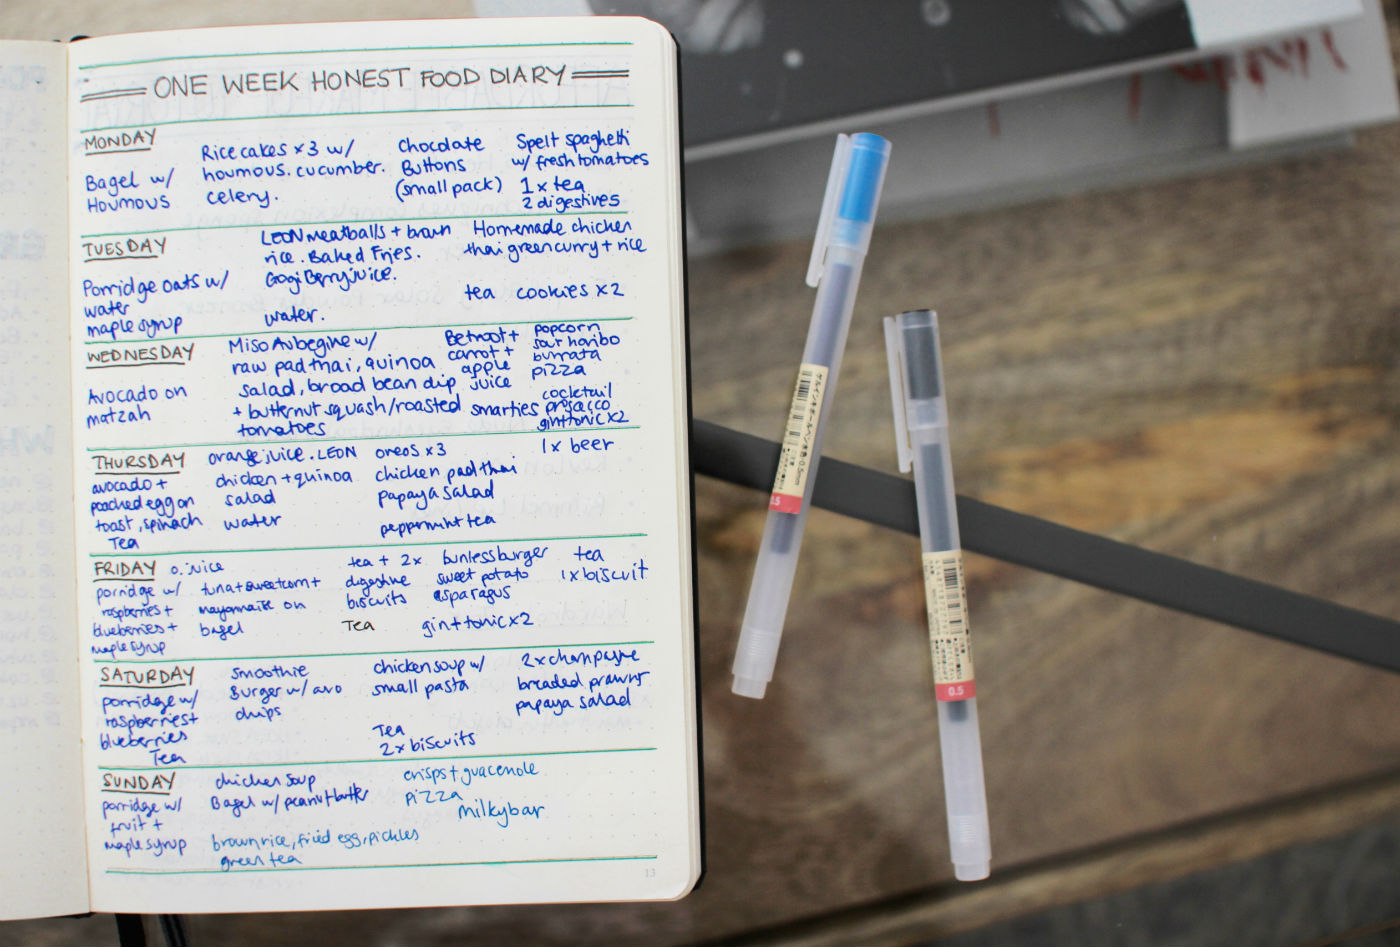 ONE WEEK HONEST FOOD DIARY
MONDAY
Bagel w/
Houmous
Ricecakes x3 w/
houmous. cucumber.
celery.
Chocolate
Buttons
(small pack)
Spelt spaghetti
w/ fresh tomatoes
1 x tea
2 digestives
TUESDAY
Porridge oats w/
water
maple syrup
LEON meatballs + brown
rice. Baked Fries.
Gogi Berry juice.
water.
Homemade chicken
thai green curry + rice
tea cookies x2
WEDNESDAY
Avocado on
matzah
Miso Aubegine w/
raw pad thai, quinoa
salad, broad bean dip
+ butternut squash/roasted
tomatoes
Betroot +
carrot +
apple
juice
smarties
popcorn
sour haribo
burrata
pizza
cocktail
prosecco
gin+tonic x2
THURSDAY
avocado +
poached egg on
toast, spinach
Tea
orange juice. LEON
chicken + quinoa
salad
water
oreos x3
chicken pad thai
papaya salad
peppermint tea
1x beer
FRIDAY
o.juice
porridge w/
raspberries +
blueberries +
maple syrup
tuna + sweetcorn +
mayonnaise on
bagel
tea + 2x
digestive
biscuits
Tea
bunless burger
sweet potato
asparagus
gin + tonic x2
tea
1x biscuit
SATURDAY
porridge w/
raspberries +
blueberries
Tea
smoothie
Burger w/ avo
chips
chicken soup w/
small pasta
Tea
2x biscuits
2x champagne
breaded prawns
papaya salad
SUNDAY
porridge w/
fruit +
maple syrup
chicken soup
Bagel w/ peanut butter
brown rice, fried egg, pickles
green tea
crisps + guacemole
pizza
milkybar
13
0.5